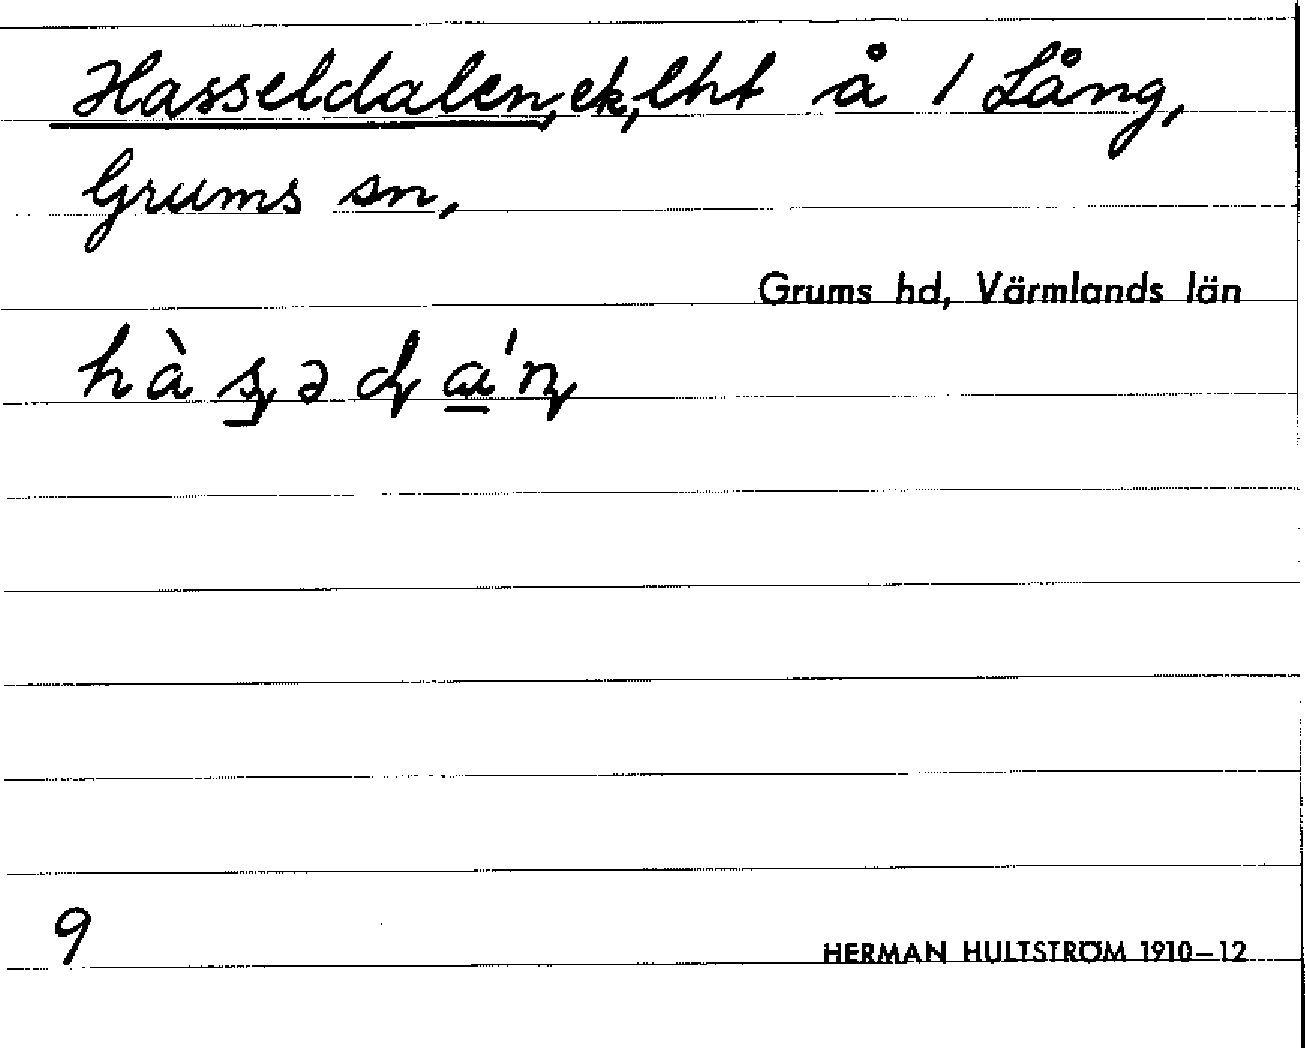 Hasseldalen, ek, lht å 1 Lång,
Grums sn,
Grums hd, Värmlands län
hàʂəɖɑ̀'ɳ
9
HERMAN HULTSTRÖM 1910–12